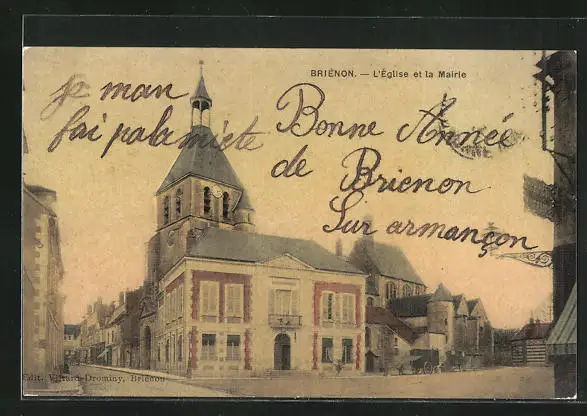 BRIÉNON. — L'Église et la Mairie
je man
fai pala micte
Bonne Année
de Brienon
Sur armançon
Edit. Villard-Drominy, Briénon